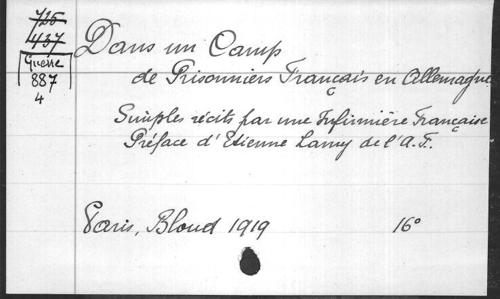 725
437
Guerre
887
4
Dans un Camp
de Prisonniers Français en Allemagne
Simples récits par une Infirmière Française
Préface d'Etienne Lamy de l'A.F.
Paris, Bloud 1919 16°